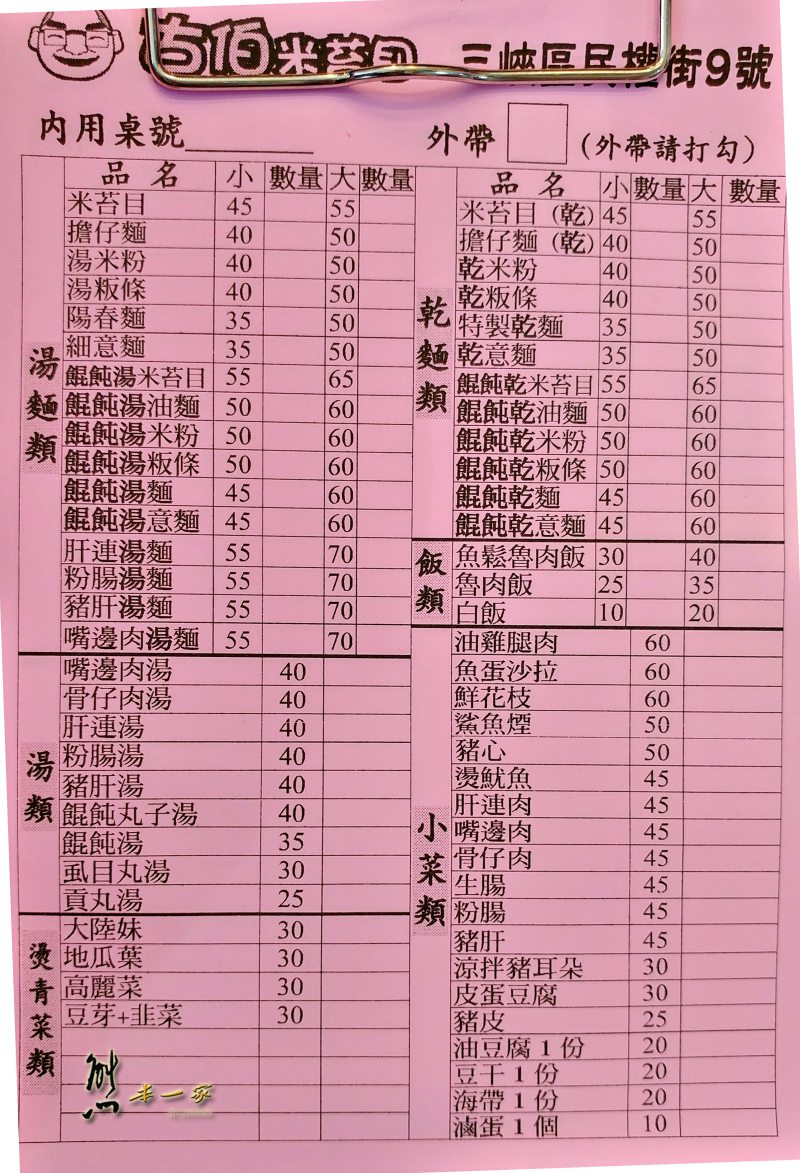 伯米苔目 三峽區民權街9號
內用桌號 外帶 (外帶請打勾)
品名 小 數量 大 數量
湯麵類
米苔目 45 55
擔仔麵 40 50
湯米粉 40 50
湯粄條 40 50
陽春麵 35 50
細意麵 35 50
餛飩湯米苔目 55 65
餛飩湯油麵 50 60
餛飩湯米粉 50 60
餛飩湯粄條 50 60
餛飩湯麵 45 60
餛飩湯意麵 45 60
肝連湯麵 55 70
粉腸湯麵 55 70
豬肝湯麵 55 70
嘴邊肉湯麵 55 70
湯類
嘴邊肉湯 40
骨仔肉湯 40
肝連湯 40
粉腸湯 40
豬肝湯 40
餛飩丸子湯 40
餛飩湯 35
虱目丸湯 30
貢丸湯 25
燙青菜類
大陸妹 30
地瓜葉 30
高麗菜 30
豆芽+韭菜 30
品名 小 數量 大 數量
乾麵類
米苔目(乾) 45 55
擔仔麵(乾) 40 50
乾米粉 40 50
乾粄條 40 50
特製乾麵 35 50
乾意麵 35 50
餛飩乾米苔目 55 65
餛飩乾油麵 50 60
餛飩乾米粉 50 60
餛飩乾粄條 50 60
餛飩乾麵 45 60
餛飩乾意麵 45 60
飯類
魚鬆魯肉飯 30 40
魯肉飯 25 35
白飯 10 20
小菜類
油雞腿肉 60
魚蛋沙拉 60
鮮花枝 60
鯊魚煙 50
豬心 50
燙魷魚 45
肝連肉 45
嘴邊肉 45
骨仔肉 45
生腸 45
粉腸 45
豬肝 45
涼拌豬耳朵 30
皮蛋豆腐 30
豬皮 25
油豆腐1份 20
豆干1份 20
海帶1份 20
滷蛋1個 10